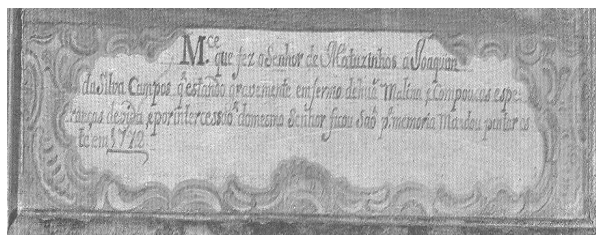 M.ce que fez o Senhor de Matuzinhos a Joaquim
da Silva Campos q' estando gravemente enfermo de huã Malina e Com poucas espe
ranças de vida e por intercessão do mesmo Senhor ficou São p.a memoria Mandou pintar es
te em 1772